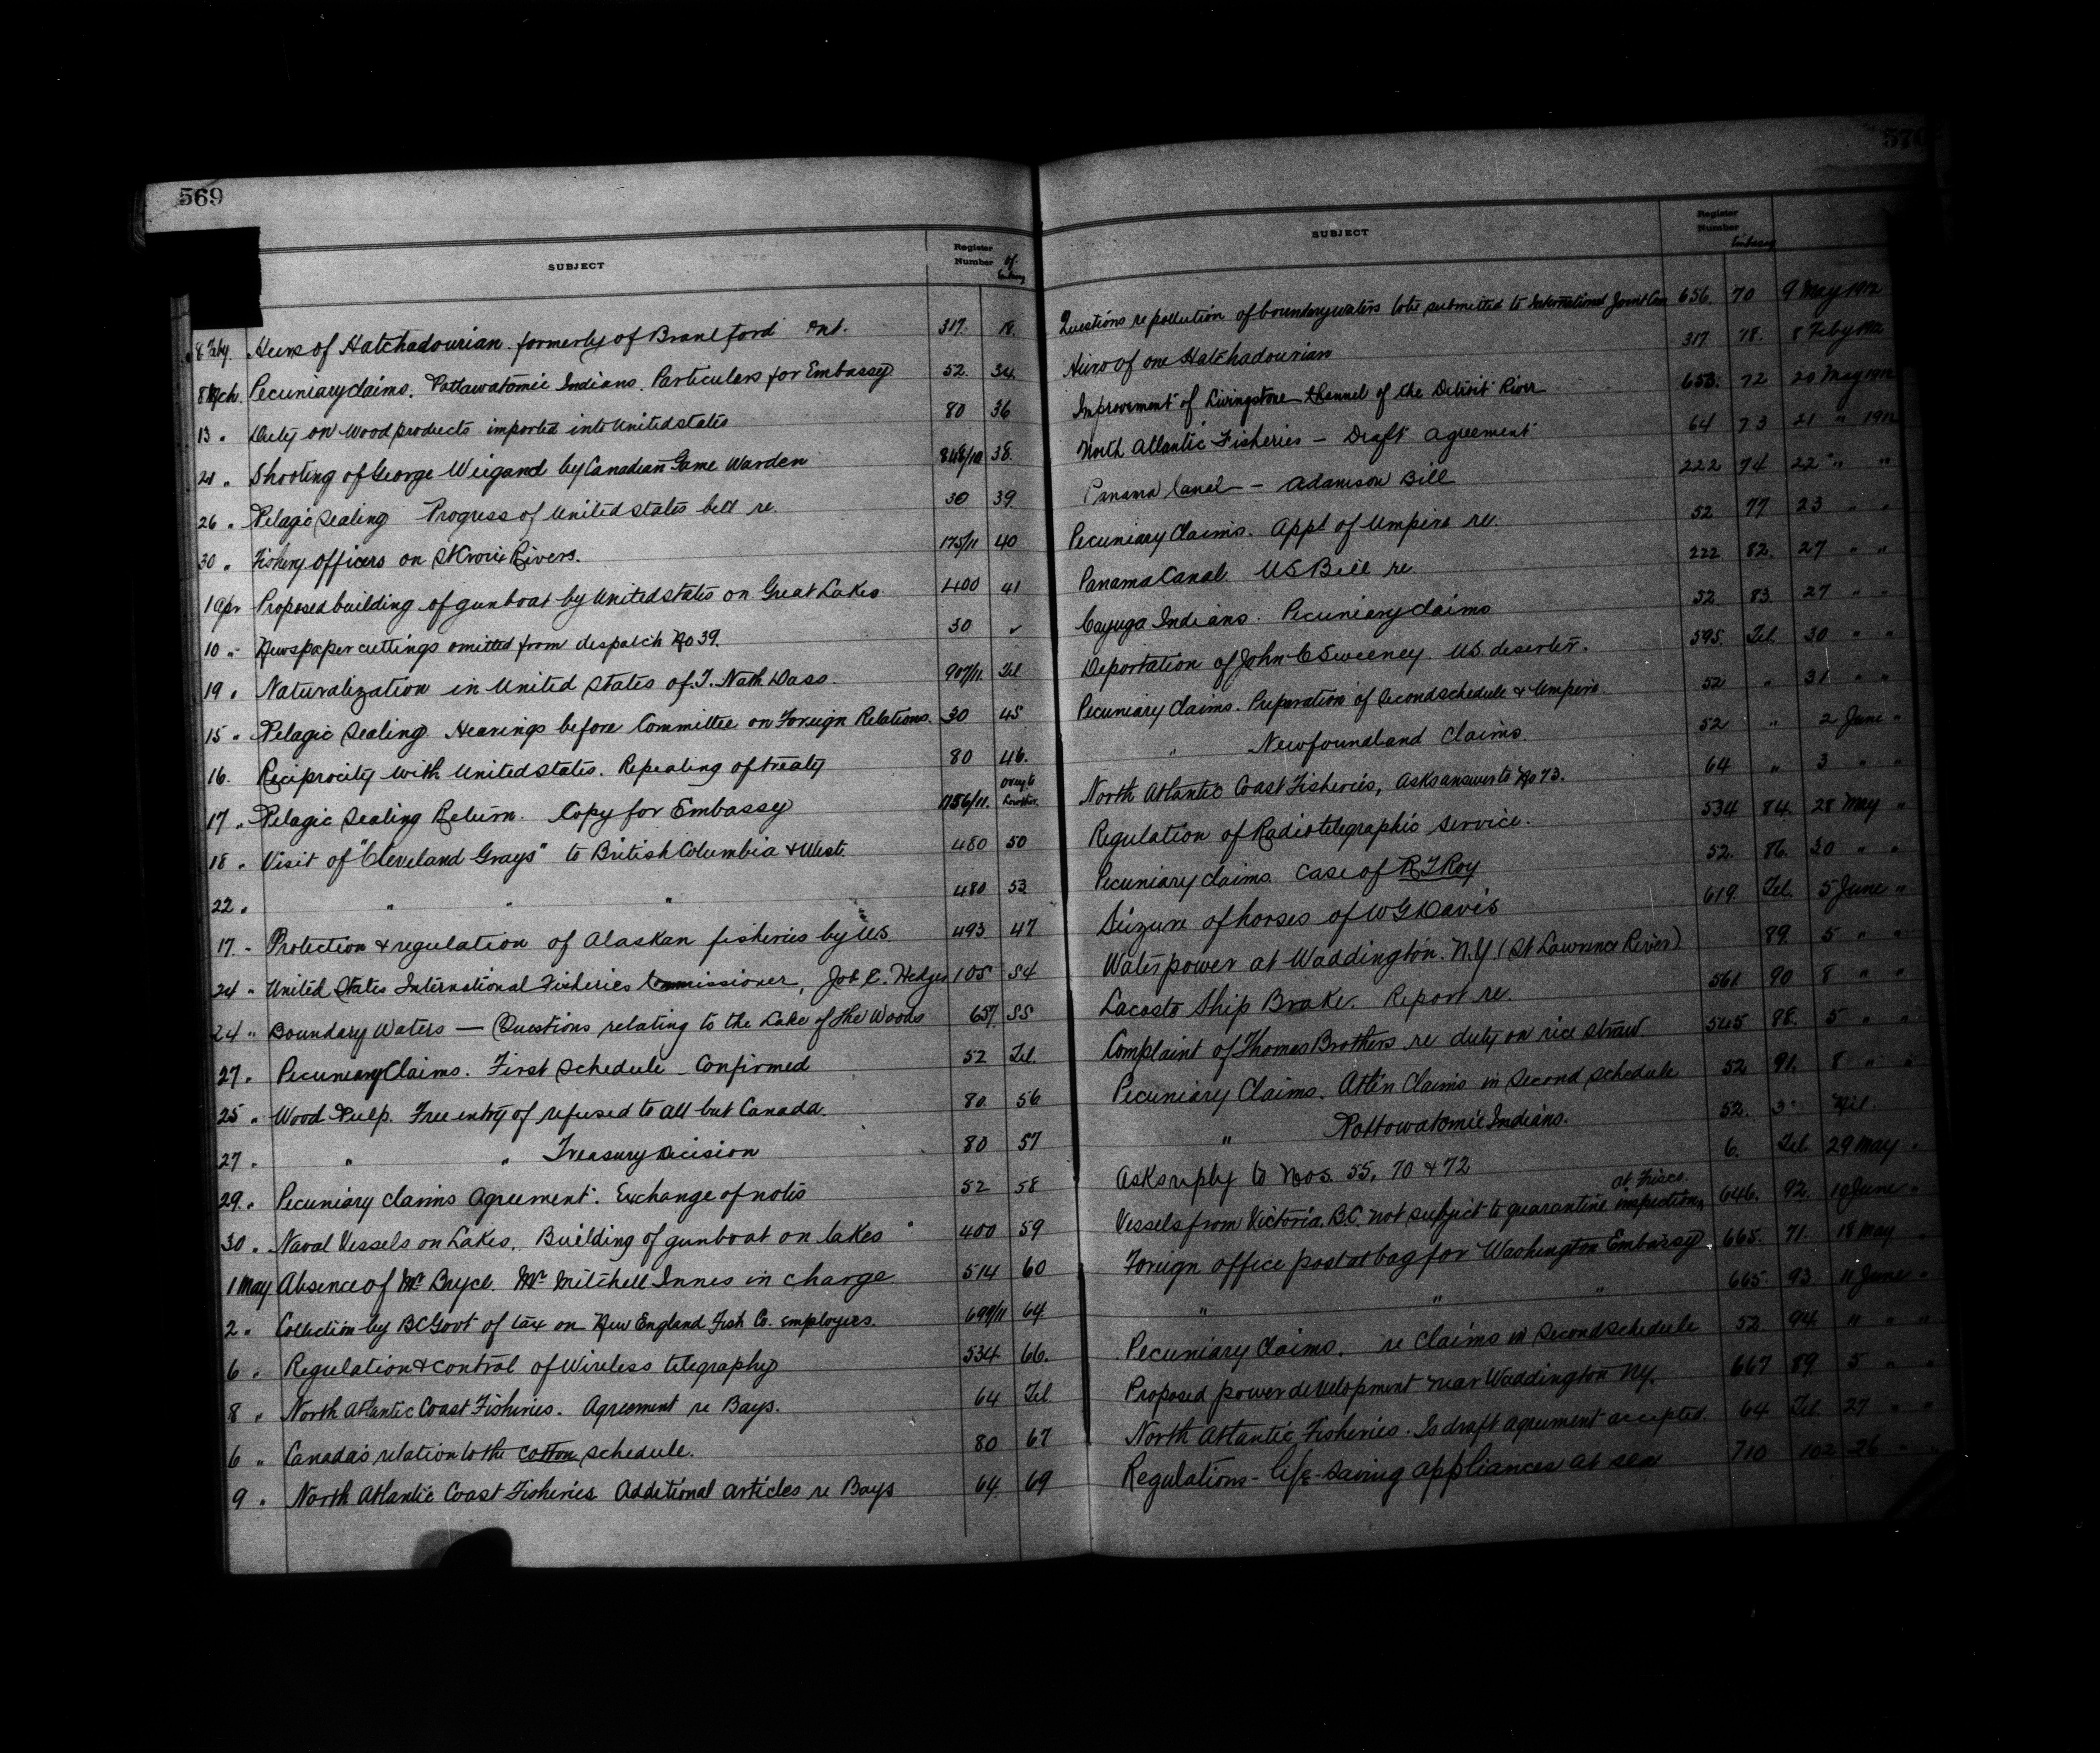 569
SUBJECT Register Number of Embassy
8 Feby. Heirs of Hatchadourian formerly of Brantford Ont. 317. 18.
8 Mch. Pecuniary claims. Pottawatomie Indians. Particulars for Embassy 52. 34
13 " Duty on Wood products imported into United States 80 36
21 " Shooting of George Weigand by Canadian Game Warden 848/10 38.
26 " Pelagic Sealing Progress of United States bill re. 30 39.
30 " Fishery officers on St Croix Rivers. 175/11 40
1 Apr Proposed building of gunboat by United States on Great Lakes 400 41
10 " Newspaper cuttings omitted from despatch No 39. 30 ✓
19 " Naturalization in United States of J. Nath Dass. 907/11. Tel
15 " Pelagic Sealing Hearings before Committee on Foreign Relations. 30 45
16. Reciprocity with United States. Repealing of treaty 80 46.
17 " Pelagic Sealing Return. Copy for Embassy 1756/11.
18 " Visit of "Cleveland Grays" to British Columbia & West. 480 50
22 " " " " 480 53
17. " Protection & regulation of Alaskan fisheries by U.S. 493 47
24 " United States International Fisheries Commissioner, Job E. Hedges 105 54
24 " Boundary Waters — Questions relating to the Lake of the Woods 657. 55
27. " Pecuniary Claims. First Schedule - Confirmed 52 Tel.
25 " Wood Pulp. Free entry of refused to all but Canada. 80. 56
27. " " Treasury Decision 80 57
29. " Pecuniary claims Agreement. Exchange of notes 52 58
30. " Naval Vessels on Lakes. Building of gunboat on lakes " 400 59
1 May Absence of Mr Bryce. Mr Mitchell Innes in charge 514 60
2 " Collection by BC Govt of tax on New England Fish Co. employees. 699/11 64
6 " Regulation & control of Wireless telegraphy 534 66.
8 " North Atlantic Coast Fisheries. Agreement re Bays. 64 Tel
6 " Canada's relation to the cotton schedule. 80 67
9 " North Atlantic Coast Fisheries Additional articles re Bays 64. 69
570
SUBJECT Register Number Embassy
Questions re pollution of boundary waters to be submitted to International Joint Com 656. 70 9 May 1912
Heirs of one Hatchadourian 317 78. 8 Feby 1912
Improvement of Livingstone Channel of the Detroit River 653. 72 20 May 1912
North Atlantic Fisheries — Draft agreement 64 73 21 " 1912
Panama Canal — Adamson Bill 222 74 22 " "
Pecuniary Claims. Appt of Umpire re. 52 77 23 " "
Panama Canal US Bill re 222 82. 27 " "
Cayuga Indians. Pecuniary claims 52 83 27 " "
Deportation of John C Sweeney. U.S. deserter. 595. Tel. 30 " "
Pecuniary Claims. Preparation of Second schedule & Umpire. 52 " 31 " "
" Newfoundland Claims. 52 " 2 June "
North Atlantic Coast Fisheries, Asks answer to No 73. 64 " 3 " "
Regulation of Radiotelegraphic service. 534 84. 28 May "
Pecuniary claims. Case of R J Roy 52. 86. 30 " "
Seizure of horses of W G Davis 619. Tel. 5 June "
Waterpower at Waddington. N.Y. (St Lawrence River) 89. 5 " "
Lacoste Ship Brake. Report re. 561. 90 8 " "
Complaint of Thomas Brothers re duty on rice straw 545 88. 5 " "
Pecuniary Claims. Atlin Claims in Second schedule 52 91. 8 " "
" Pottowatomie Indians. 52.
Asks reply to Nos. 55, 70 & 72 6. Tel. 29 May "
Vessels from Victoria B.C. not subject to quarantine inspection at Frisco. 646. 92. 10 June "
Foreign office postal bag for Washington Embassy 665. 71. 18 May "
" " " 665. 93. 11 June "
Pecuniary Claims. re Claims in Second schedule 52. 94 11 " "
Proposed power development near Waddington NY. 667 89. 5 " "
North Atlantic Fisheries. Is draft agreement accepted. 64 Tel 27 " "
Regulations - life-saving appliances at sea 710 102 26 " "